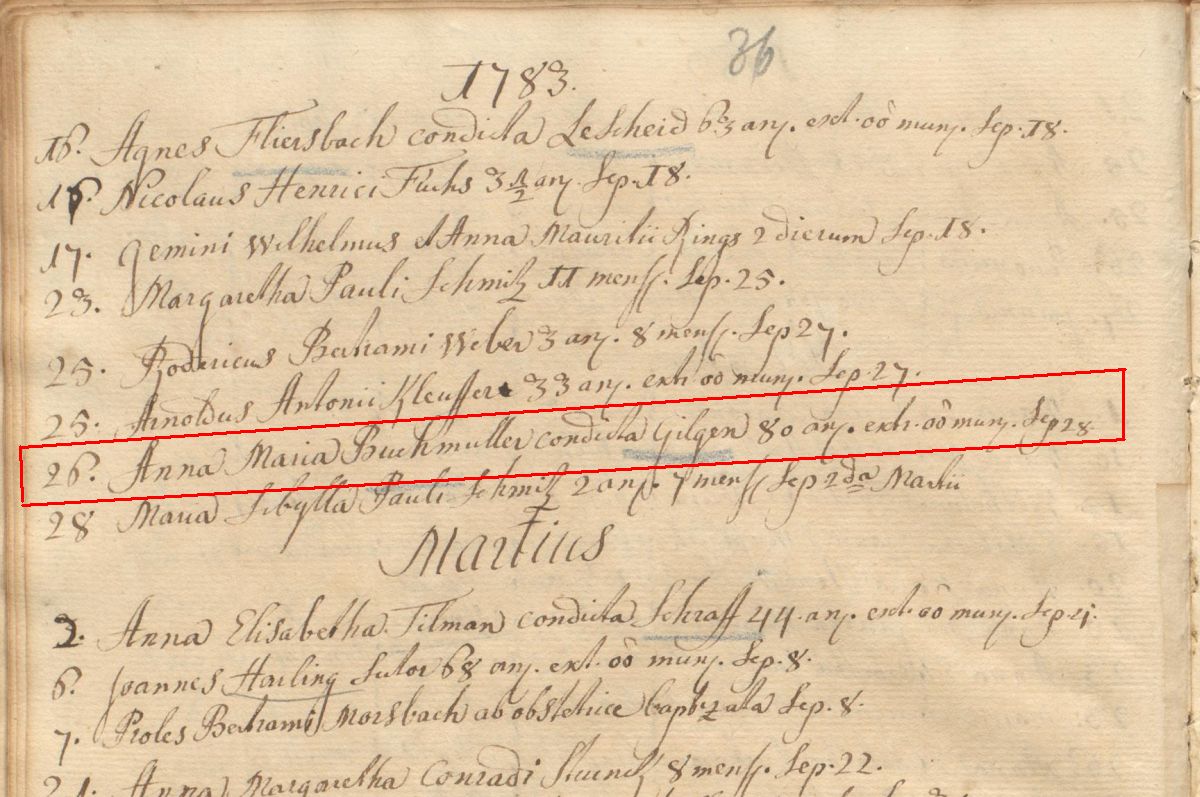 36
1783.
16. Agnes Fliersbach condicta Lescheid 63 anʃ. ext. oô munʃ. Sep. 18.
16. Nicolaus Henrici Fuchs 3 1/2 anʃ. Sep. 18.
17. gemini Wilhelmus et Anna Mauritii Rings 2 dierum Sep. 18.
23. Margaretha Pauli Schmitz 11 menʃʃ. Sep. 25.
25. Rodericus Bertrami Weber 3 anʃ. 8 menʃʃ. Sep 27.
25. Arnoldus Antonii Kleuffer 33 anʃ. extr. oô munʃ. Sep. 27.
26. Anna Maria Buchmuller condicta Gilgen 80 anʃ. extr. oô munʃ. Sep 28.
28 Maria Sibylla Pauli Schmitz 2 anʃ. 7 menʃʃ Sep 2da Martii
Martius
2. Anna Elisabetha Tilman condicta Schraff 44 anʃ. ext. oô munʃ. Sep. 4.
6. Joannes Harling sutor 68 anʃ. ext. oô munʃ. Sep. 8.
7. Proles Bertrami Morsbach ab obstetrice baptizata Sep. 8.
21. Anna Margaretha Conradi 8 menʃ. Sep. 22.